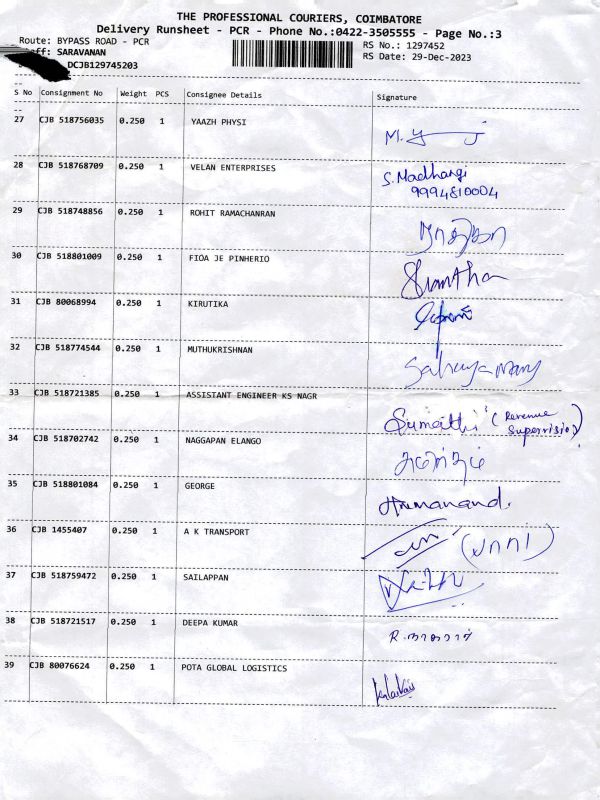 THE PROFESSIONAL COURIERS, COIMBATORE
Delivery Runsheet - PCR - Phone No.:0422-3505555 - Page No.:3
Route: BYPASS ROAD - PCR
RS No.: 1297452
SARAVANAN
RS Date: 29-Dec-2023
DCJB129745203
S No Consignment No Weight PCS Consignee Details Signature
27 CJB 518756035 0.250 1 YAAZH PHYSI
28 CJB 518768709 0.250 1 VELAN ENTERPRISES S. Madhangi
9994810004
29 CJB 518748856 0.250 1 ROHIT RAMACHANRAN
30 CJB 518801009 0.250 1 FIOA JE PINHERIO
31 CJB 80068994 0.250 1 KIRUTIKA
32 CJB 518774544 0.250 1 MUTHUKRISHNAN
33 CJB 518721385 0.250 1 ASSISTANT ENGINEER KS NAGR Sumathi (Revenue
Supervisior)
34 CJB 518702742 0.250 1 NAGGAPAN ELANGO
35 CJB 518801084 0.250 1 GEORGE
36 CJB 1455407 0.250 1 A K TRANSPORT
37 CJB 518759472 0.250 1 SAILAPPAN
38 CJB 518721517 0.250 1 DEEPA KUMAR
39 CJB 80076624 0.250 1 POTA GLOBAL LOGISTICS